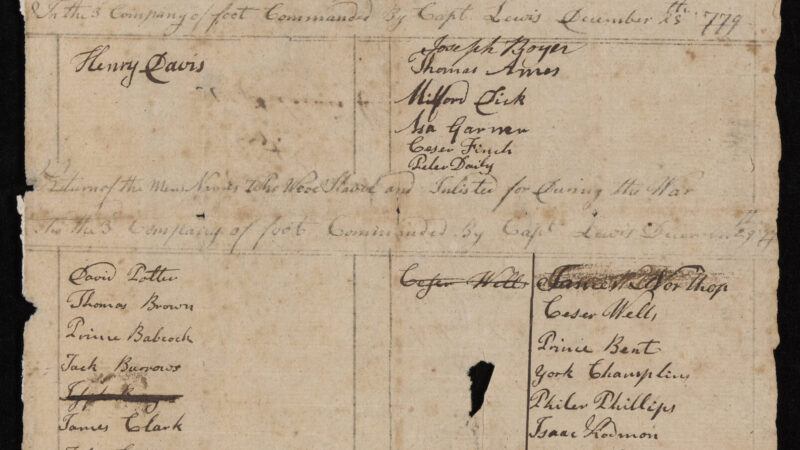 In the 3 Company of foot Commanded By Capt. Lewis December 28th 779
Henry Davis
Joseph Boyer
Thomas Ames
Milford Dick
Asa Garner
Ceser Finch
Peter Daily
Return of the Mens Names Who Wore Slaves and Inlisted for During the War
In the 3 Company of foot Commanded By Capt Lewis
David Potter
Thomas Brown
Prince Babcock
Jack Burrows
James Clark
Ceser Wells
Northop
Ceser Wells
Prince Bent
York Champlin
Philer Phillips
Isaac Rodmon